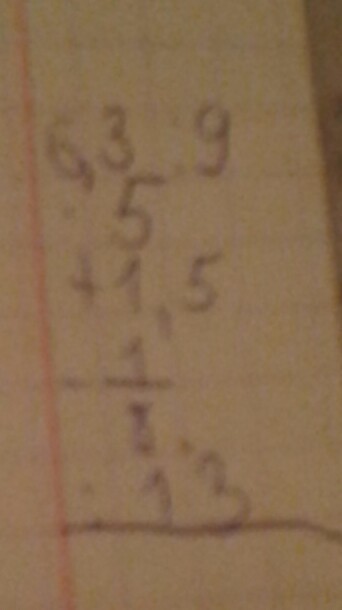 6,3 : 9
· 5
+ 1,5
- 1
: 13